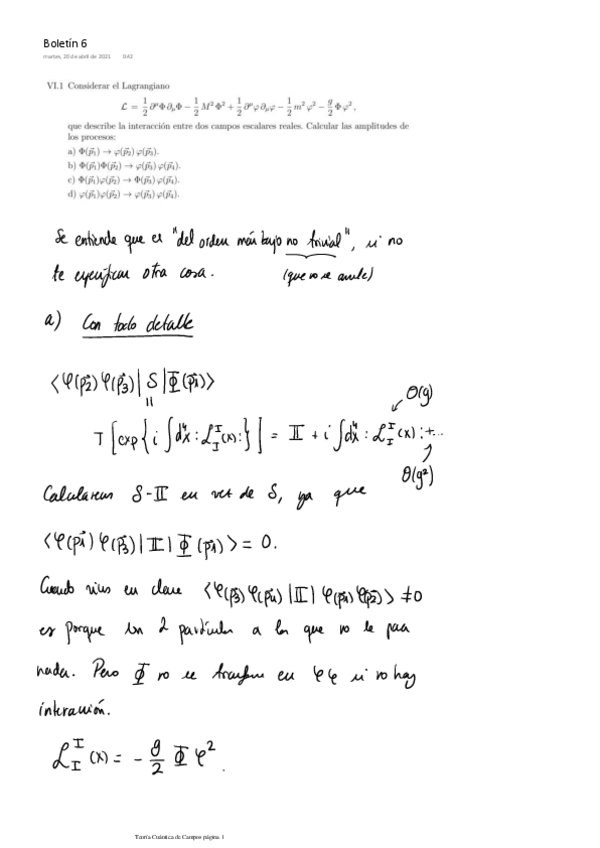 Boletín 6
martes, 20 de abril de 2021 0:42
VI.1 Considerar el Lagrangiano
ℒ = 1/2 ∂^μΦ ∂_μΦ − 1/2 M² Φ² + 1/2 ∂^μφ ∂_μφ − 1/2 m² φ² − g/2 Φ φ² ,
que describe la interacción entre dos campos escalares reales. Calcular las amplitudes de
los procesos:
a) Φ(p⃗₁) → φ(p⃗₂) φ(p⃗₃).
b) Φ(p⃗₁)Φ(p⃗₂) → φ(p⃗₃) φ(p⃗₄).
c) Φ(p⃗₁)φ(p⃗₂) → Φ(p⃗₃) φ(p⃗₄).
d) φ(p⃗₁)φ(p⃗₂) → φ(p⃗₃) φ(p⃗₄).
Se entiende que es "del orden más bajo no trivial", si no
te especifican otra cosa. (que no se anule)
a) Con todo detalle
⟨φ(p⃗₂) φ(p⃗₃)| S |Φ(p⃗₁)⟩
O(g)
T[exp{i ∫d⁴x :ℒ_I^I(x):}] = 𝕀 + i ∫d⁴x :ℒ_I^I(x): + ...
O(g²)
Calculamos S-𝕀 en vez de S, ya que
⟨φ(p⃗₂) φ(p⃗₃)| 𝕀 |Φ(p⃗₁)⟩ = 0.
Cuando vimos en clase ⟨φ(p⃗₃) φ(p⃗₄)| 𝕀 |φ(p⃗₁) φ(p⃗₂)⟩ ≠ 0
es porque son 2 partículas a las que no le pasa
nada. Pero Φ no se transforma en φφ si no hay
interacción.
ℒ_I^I(x) = − g/2 Φ φ².
Teoría Cuántica de Campos página 1